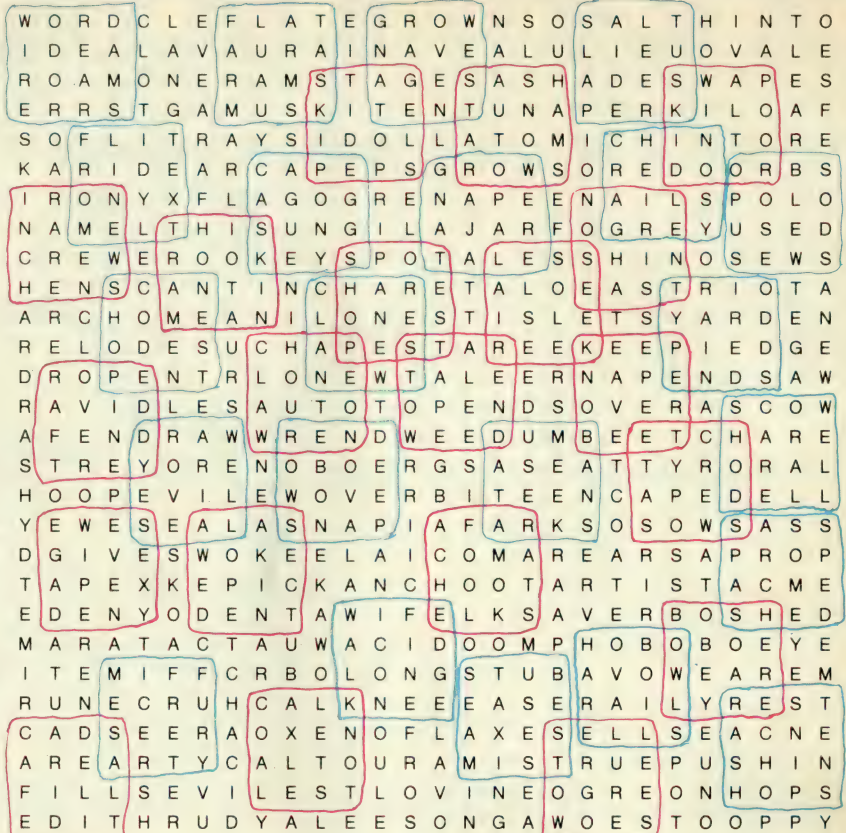 W O R D C L E F L A T E G R O W N S O S A L T H I N T O
I D E A L A V A U R A I N A V E A L U L I E U O V A L E
R O A M O N E R A M S T A G E S A S H A D E S W A P E S
E R R S T G A M U S K I T E N T U N A P E R K I L O A F
S O F L I T R A Y S I D O L L A T O M I C H I N T O R E
K A R I D E A R C A P E P S G R O W S O R E D O O R B S
I R O N Y X F L A G O G R E N A P E E N A I L S P O L O
N A M E L T H I S U N G I L A J A R F O G R E Y U S E D
C R E W E R O O K E Y S P O T A L E S S H I N O S E W S
H E N S C A N T I N C H A R E T A L O E A S T R I O T A
A R C H O M E A N I L O N E S T I S L E T S Y A R D E N
R E L O D E S U C H A P E S T A R E E K E E P I E D G E
D R O P E N T R L O N E W T A L E E R N A P E N D S A W
R A V I D L E S A U T O T O P E N D S O V E R A S C O W
A F E N D R A W W R E N D W E E D U M B E E T C H A R E
S T R E Y O R E N O B O E R G S A S E A T T Y R O R A L
H O O P E V I L E W O V E R B I T E E N C A P E D E L L
Y E W E S E A L A S N A P I A F A R K S O S O W S A S S
D G I V E S W O K E E L A I C O M A R E A R S A P R O P
T A P E X K E P I C K A N C H O O T A R T I S T A C M E
E D E N Y O D E N T A W I F E L K S A V E R B O S H E D
M A R A T A C T A U W A C I D O O M P H O B O B O E Y E
I T E M I F F C R B O L O N G S T U B A V O W E A R E M
R U N E C R U H C A L K N E E E A S E R A I L Y R E S T
C A D S E E R A O X E N O F L A X E S E L L S E A C N E
A R E A R T Y C A L T O U R A M I S T R U E P U S H I N
F I L L S E V I L E S T L O V I N E O G R E O N H O P S
E D I T H R U D Y A L E E S O N G A W O E S T O O P P Y